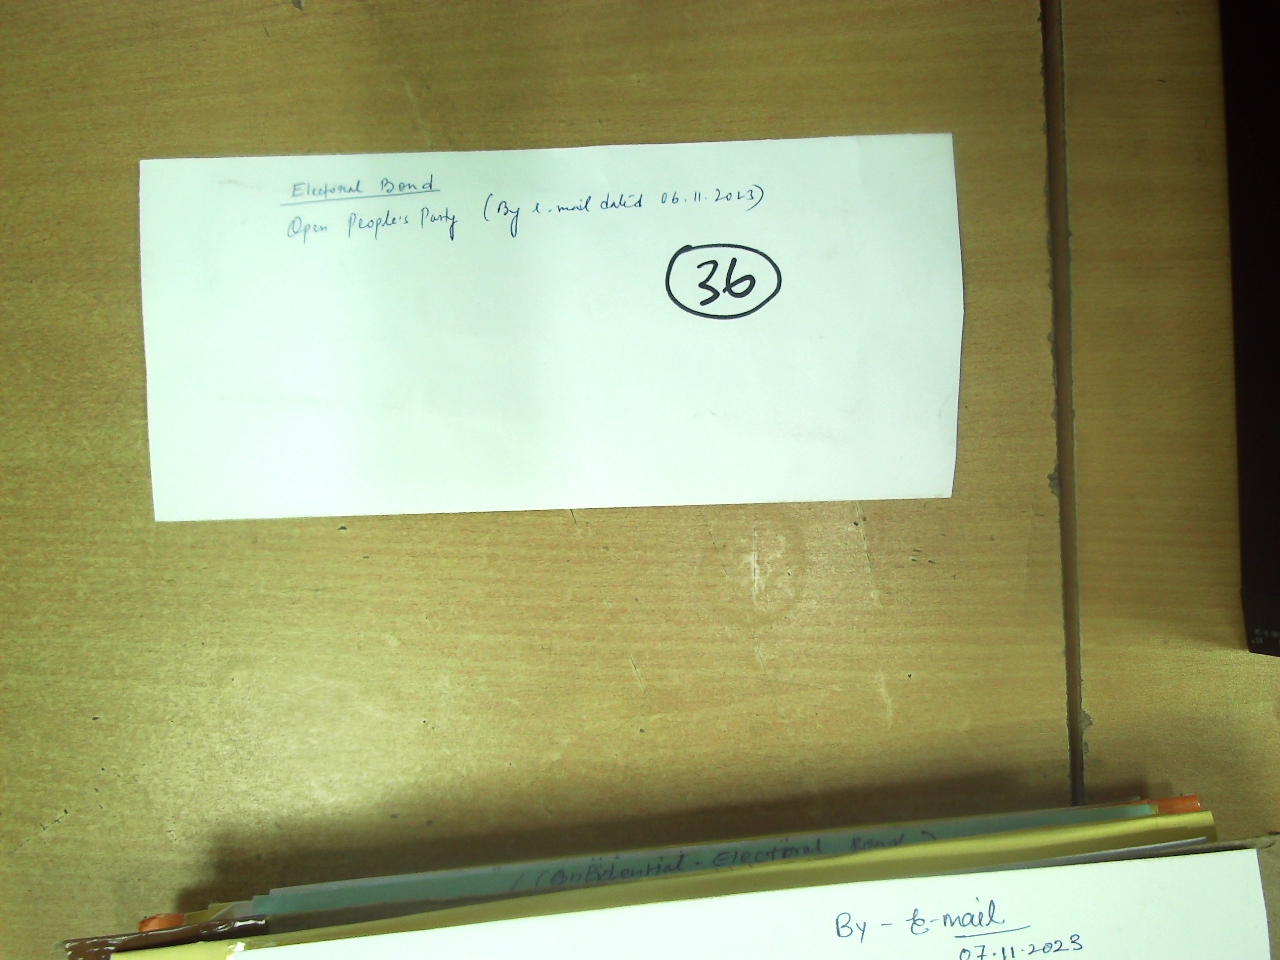 Electoral Bond
Open People's Party (By e.mail dated 06.11.2023)
36
(Confidential - Electoral Bond)
By - E-mail
07.11.2023